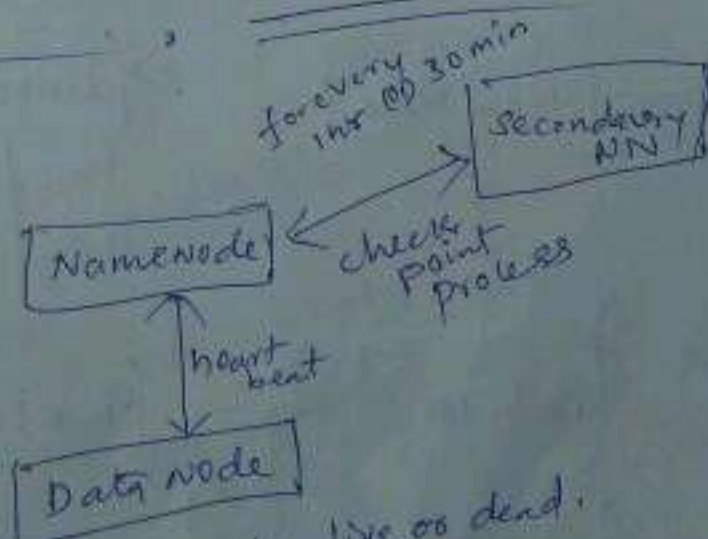 for every
1hr (or) 30min
Secondary
NN
NameNode
check
point
process
heart
beat
Data Node
live or dead.